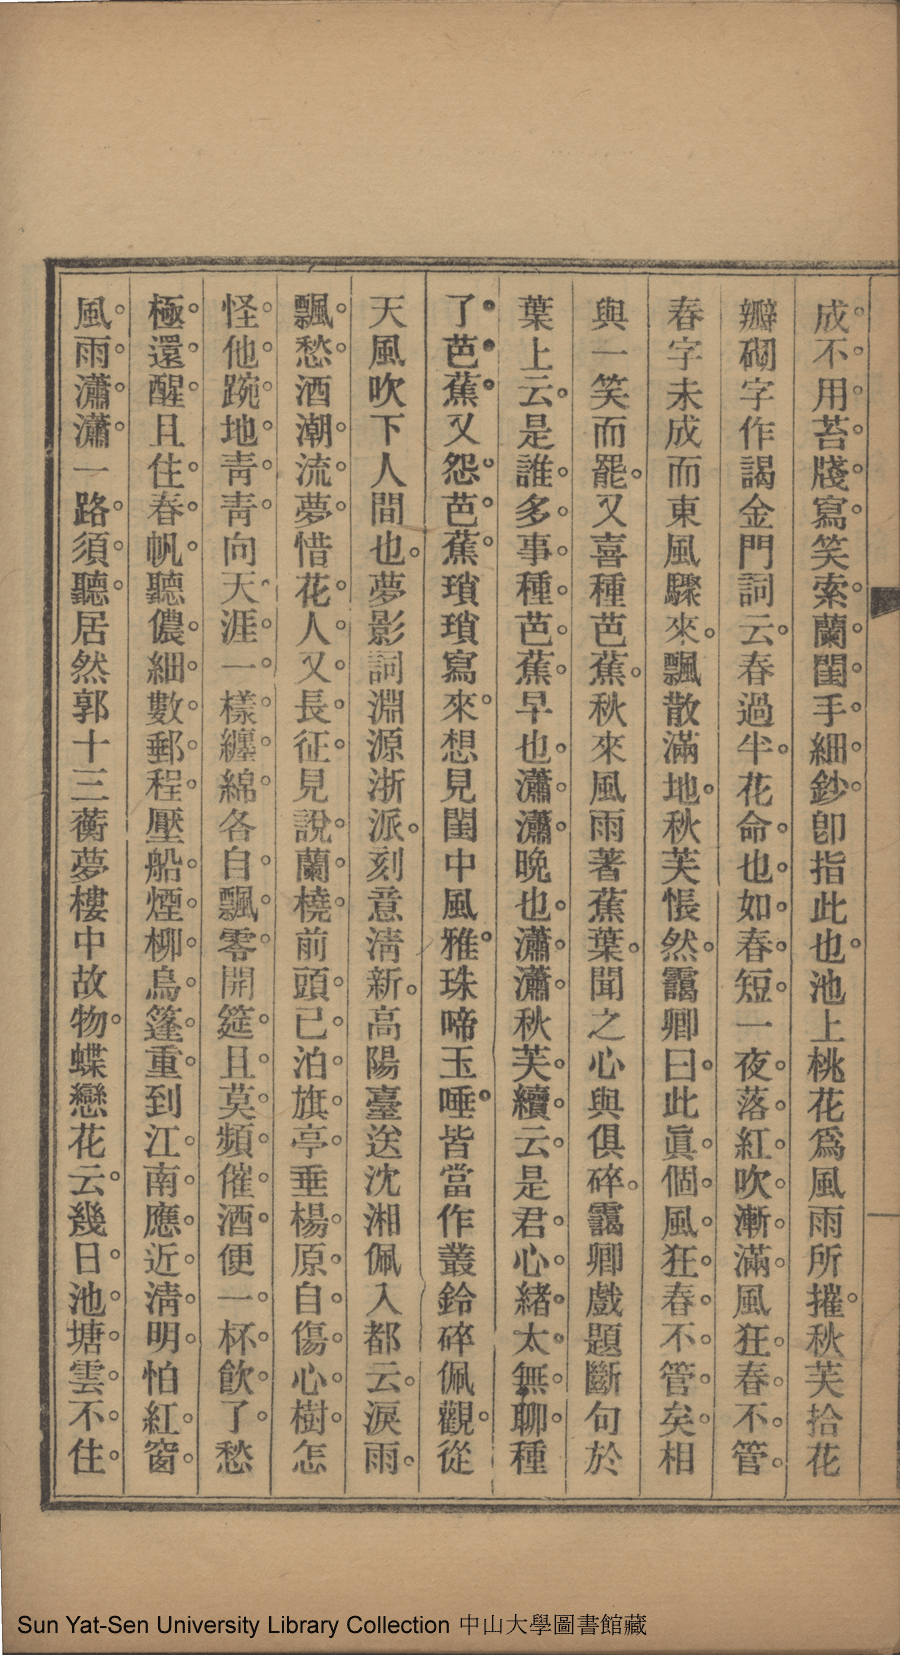 成不用苔牋寫笑索蘭閨手細鈔卽指此也池上桃花爲風雨所摧秋芙拾花
瓣砌字作謁金門詞云春過半花命也如春短一夜落紅吹漸滿風狂春不管
春字未成而東風驟來飄散滿地秋芙悵然靄卿曰此眞個風狂春不管矣相
與一笑而罷又喜種芭蕉秋來風雨著蕉葉聞之心與俱碎靄卿戲題斷句於
葉上云是誰多事種芭蕉早也瀟瀟晚也瀟瀟秋芙續云是君心緒太無聊種
了芭蕉又怨芭蕉瑣瑣寫來想見閨中風雅珠啼玉唾皆當作叢鈴碎佩觀從
天風吹下人間也夢影詞淵源浙派刻意淸新高陽臺送沈湘佩入都云淚雨
飄愁酒潮流夢惜花人又長征見說蘭橈前頭已泊旗亭垂楊原自傷心樹怎
怪他踠地靑靑向天涯一樣纏綿各自飄零開筵且莫頻催酒便一杯飮了愁
極還醒且住春帆聽儂細數郵程壓船煙柳烏篷重到江南應近淸明怕紅窗
風雨瀟瀟一路須聽居然郭十三蘅夢樓中故物蝶戀花云幾日池塘雲不住
Sun Yat-Sen University Library Collection 中山大學圖書館藏